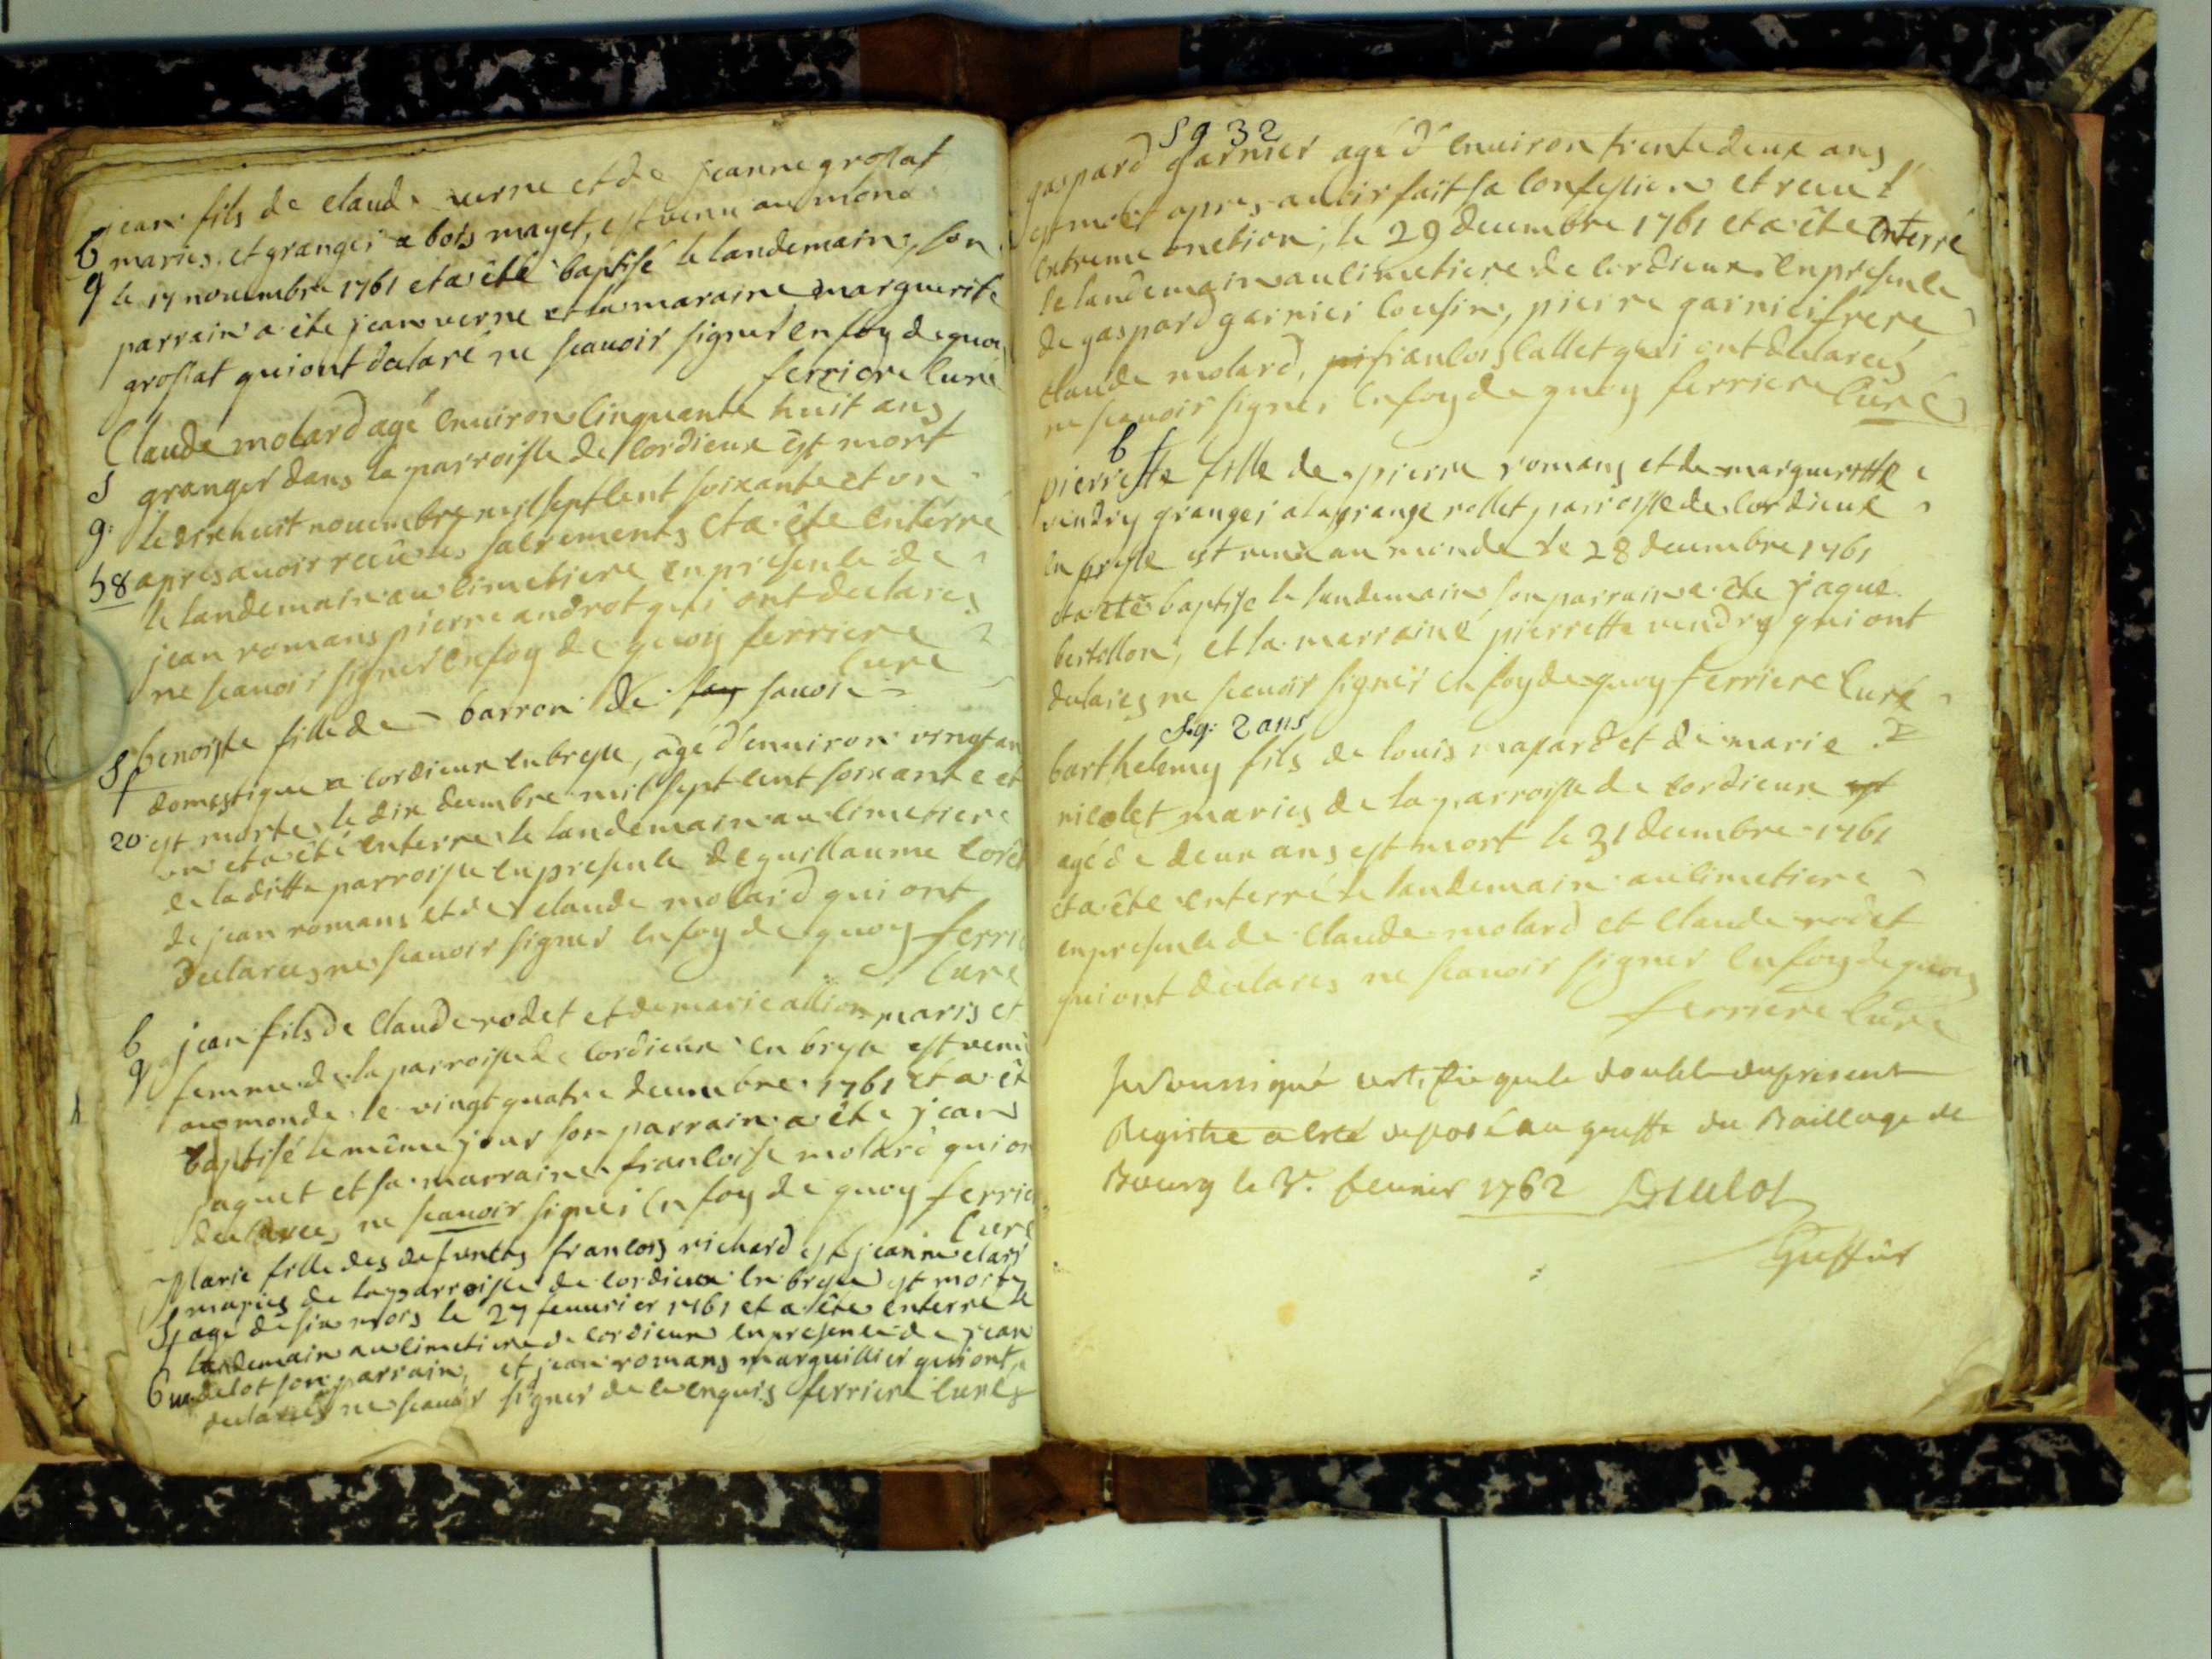 jean fils de claude verne et de jeanne grossat
b maries et granger a bois mayet, est venu au mond
g le 17 nouembre 1761 et a été baptisé le landemain, son
parrain a été jean verne et la maraine marguerite
grossat qui ont declaré ne scauoir signer en foy de quoy
ferriere curé
Claude molard agé enuiron cinquante huit ans
S granger dans la parroisse de cordieux est mort
g: le dix huit nouembre mil sept cent soixante et un
58 apres auoir receu les sacrements et a été enterré
le landemain au cimetiere en presence de
jean romans pierre androt qui ont declares
ne scauoir signer en foy de quoy ferriere
curé
benoiste fille de barron de sauoie
S domestique a cordieux en bresse, agé d'enuiron vingt an
f
20 est morte le dix decembre mil sept cent soixante et
un et a été enterre le landemain au cimetiere
de la ditte parroisse en presence de guillaume
de jean romans et de claude molard qui ont
declares ne scauoir signer en foy de quoy ferrie
curé
b jean fils de claude rodet et de marie allion maris et
g femme de la parroisse de cordieux en bresse est venu
au monde le vingt quatre decembre 1761 et a ét
baptisé le même jour son parrain a été jean
jaquet et sa marraine francoise molard qui on
declarees ne scauoir signer en foy de quoy ferrie
curé
Marie fille des defuncts francois richard et jeanne
maries de la parroisse de cordieux en bresse est morte
S agé de six mois le 27 feuurier 1761 et a été enterré le
f landemain au cimetiere de cordieux en presence de jean
6 m son parrain, et jean romans marguillier qui ont
declares ne scauoir signer de ce enquis ferriere curé
S g 32
gaspard garnier agé d'enuiron trente deux ans
est mort apres auoir fait sa confession et receu l
extreme onction, le 29 decembre 1761 et a été enterré
le landemain au cimetiere de cordieux en presence
de gaspard garnier cousin, pierre garnier frere
claude molard, francois callet qui ont declarees
ne scauoir signer en foy de quoy ferriere curé
b f
pierrette fille de pierre romans et de margueritte
vendry granger a la grange rollet parroisse de cordieux
en bresse est venue au monde le 28 decembre 1761
et a été baptise le landemain son parrain a été jaque
bertollon, et la marraine pierrette vendry qui ont
declares ne scauoir signer en foy de quoy ferriere curé
S.g: 2 ans
barthelemy fils de louis mapard et de marie
nicolet maries de la parroisse de cordieux est
agé de deux ans est mort le 31 decembre 1761
et a été enterré le landemain au cimetiere
en presence de claude molard et claude rodet
qui ont declares ne scauoir signer en foy de quoy
ferriere curé
Je soussigné certifie que le double du present
Registre a esté deposé au greffe du Baillage de
Bourg le 3e. feurier 1762
Greffier